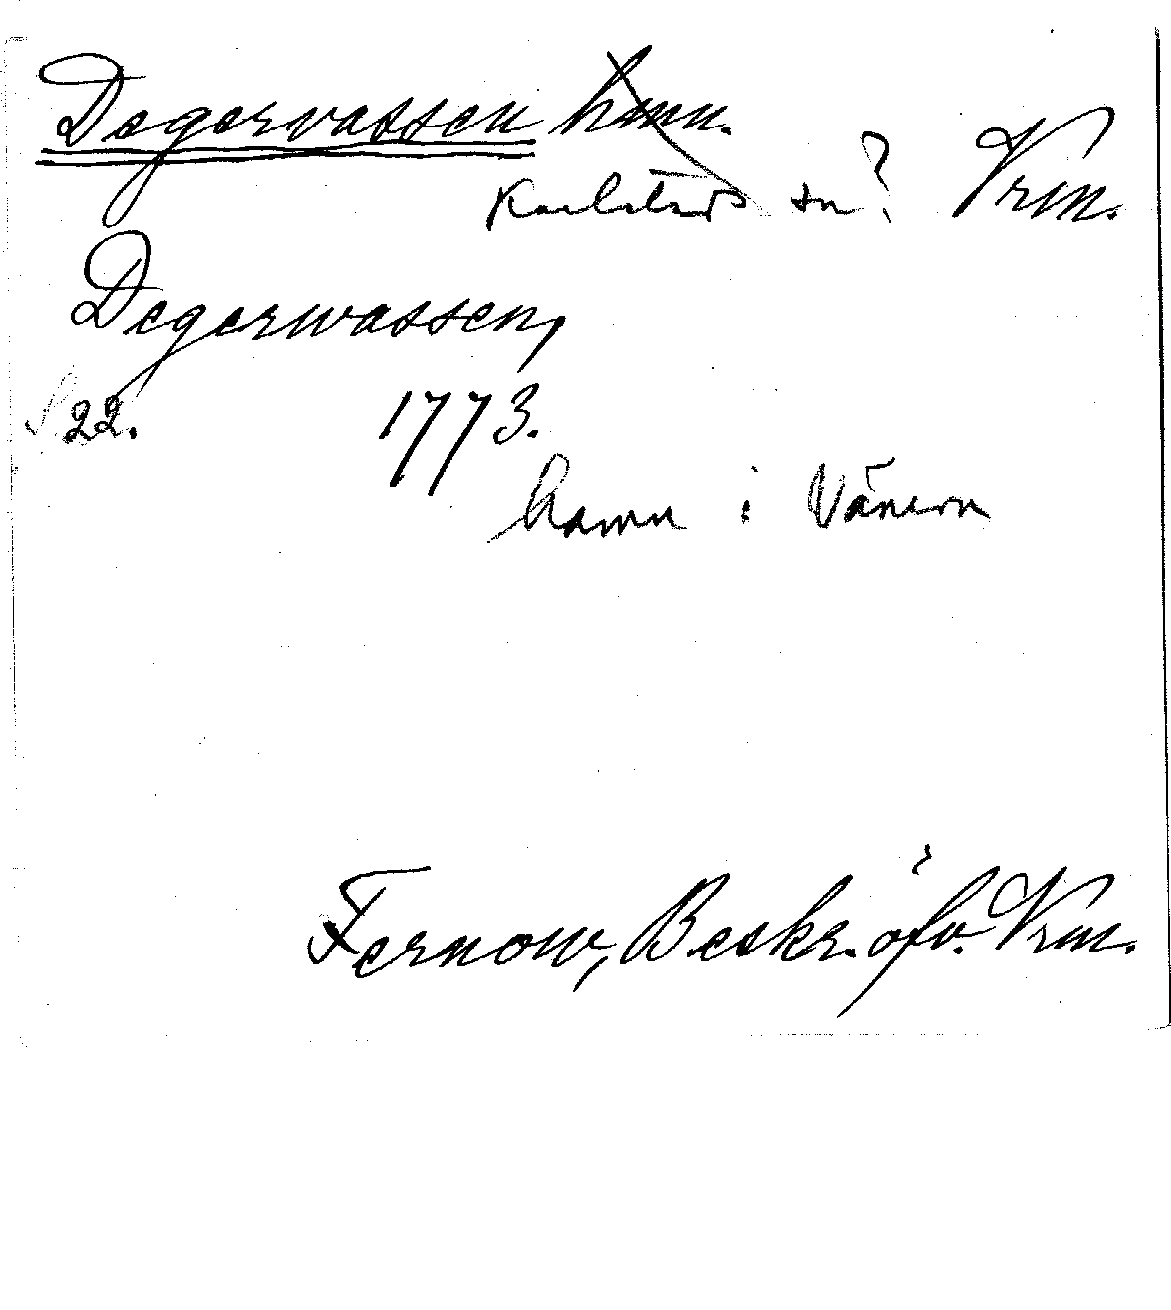 Degervassen hmn.
Karlstads sn? Vrm.
Degerwassen,
S 22. 1773.
hamn i Vänern
Fernow, Beskr. öfv. Vrm.